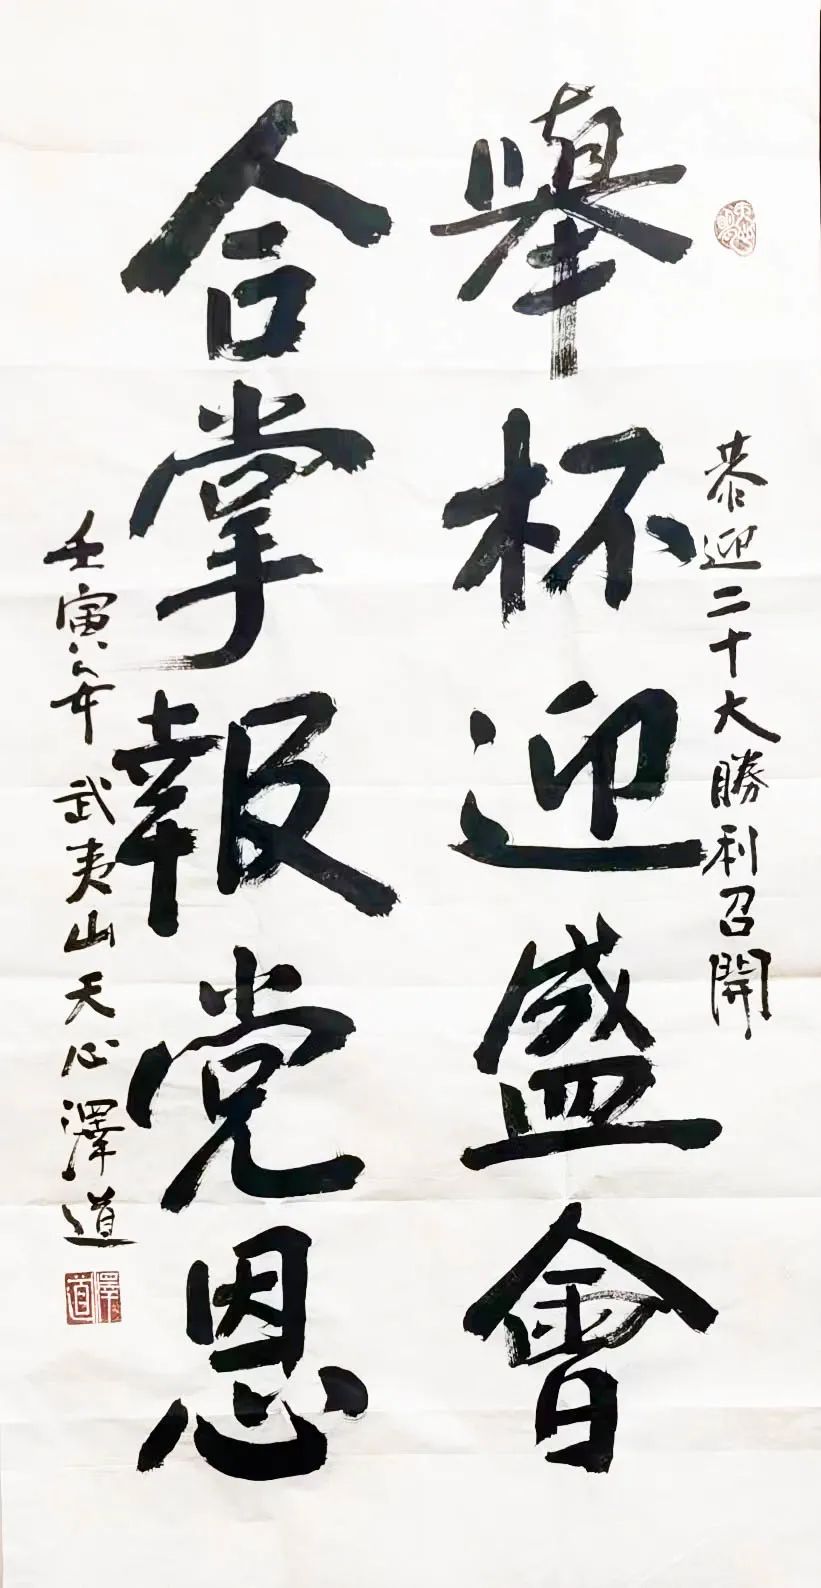 恭迎二十大勝利召開
舉杯迎盛會
合掌報党恩
壬寅年 武夷山天心澤道
澤道